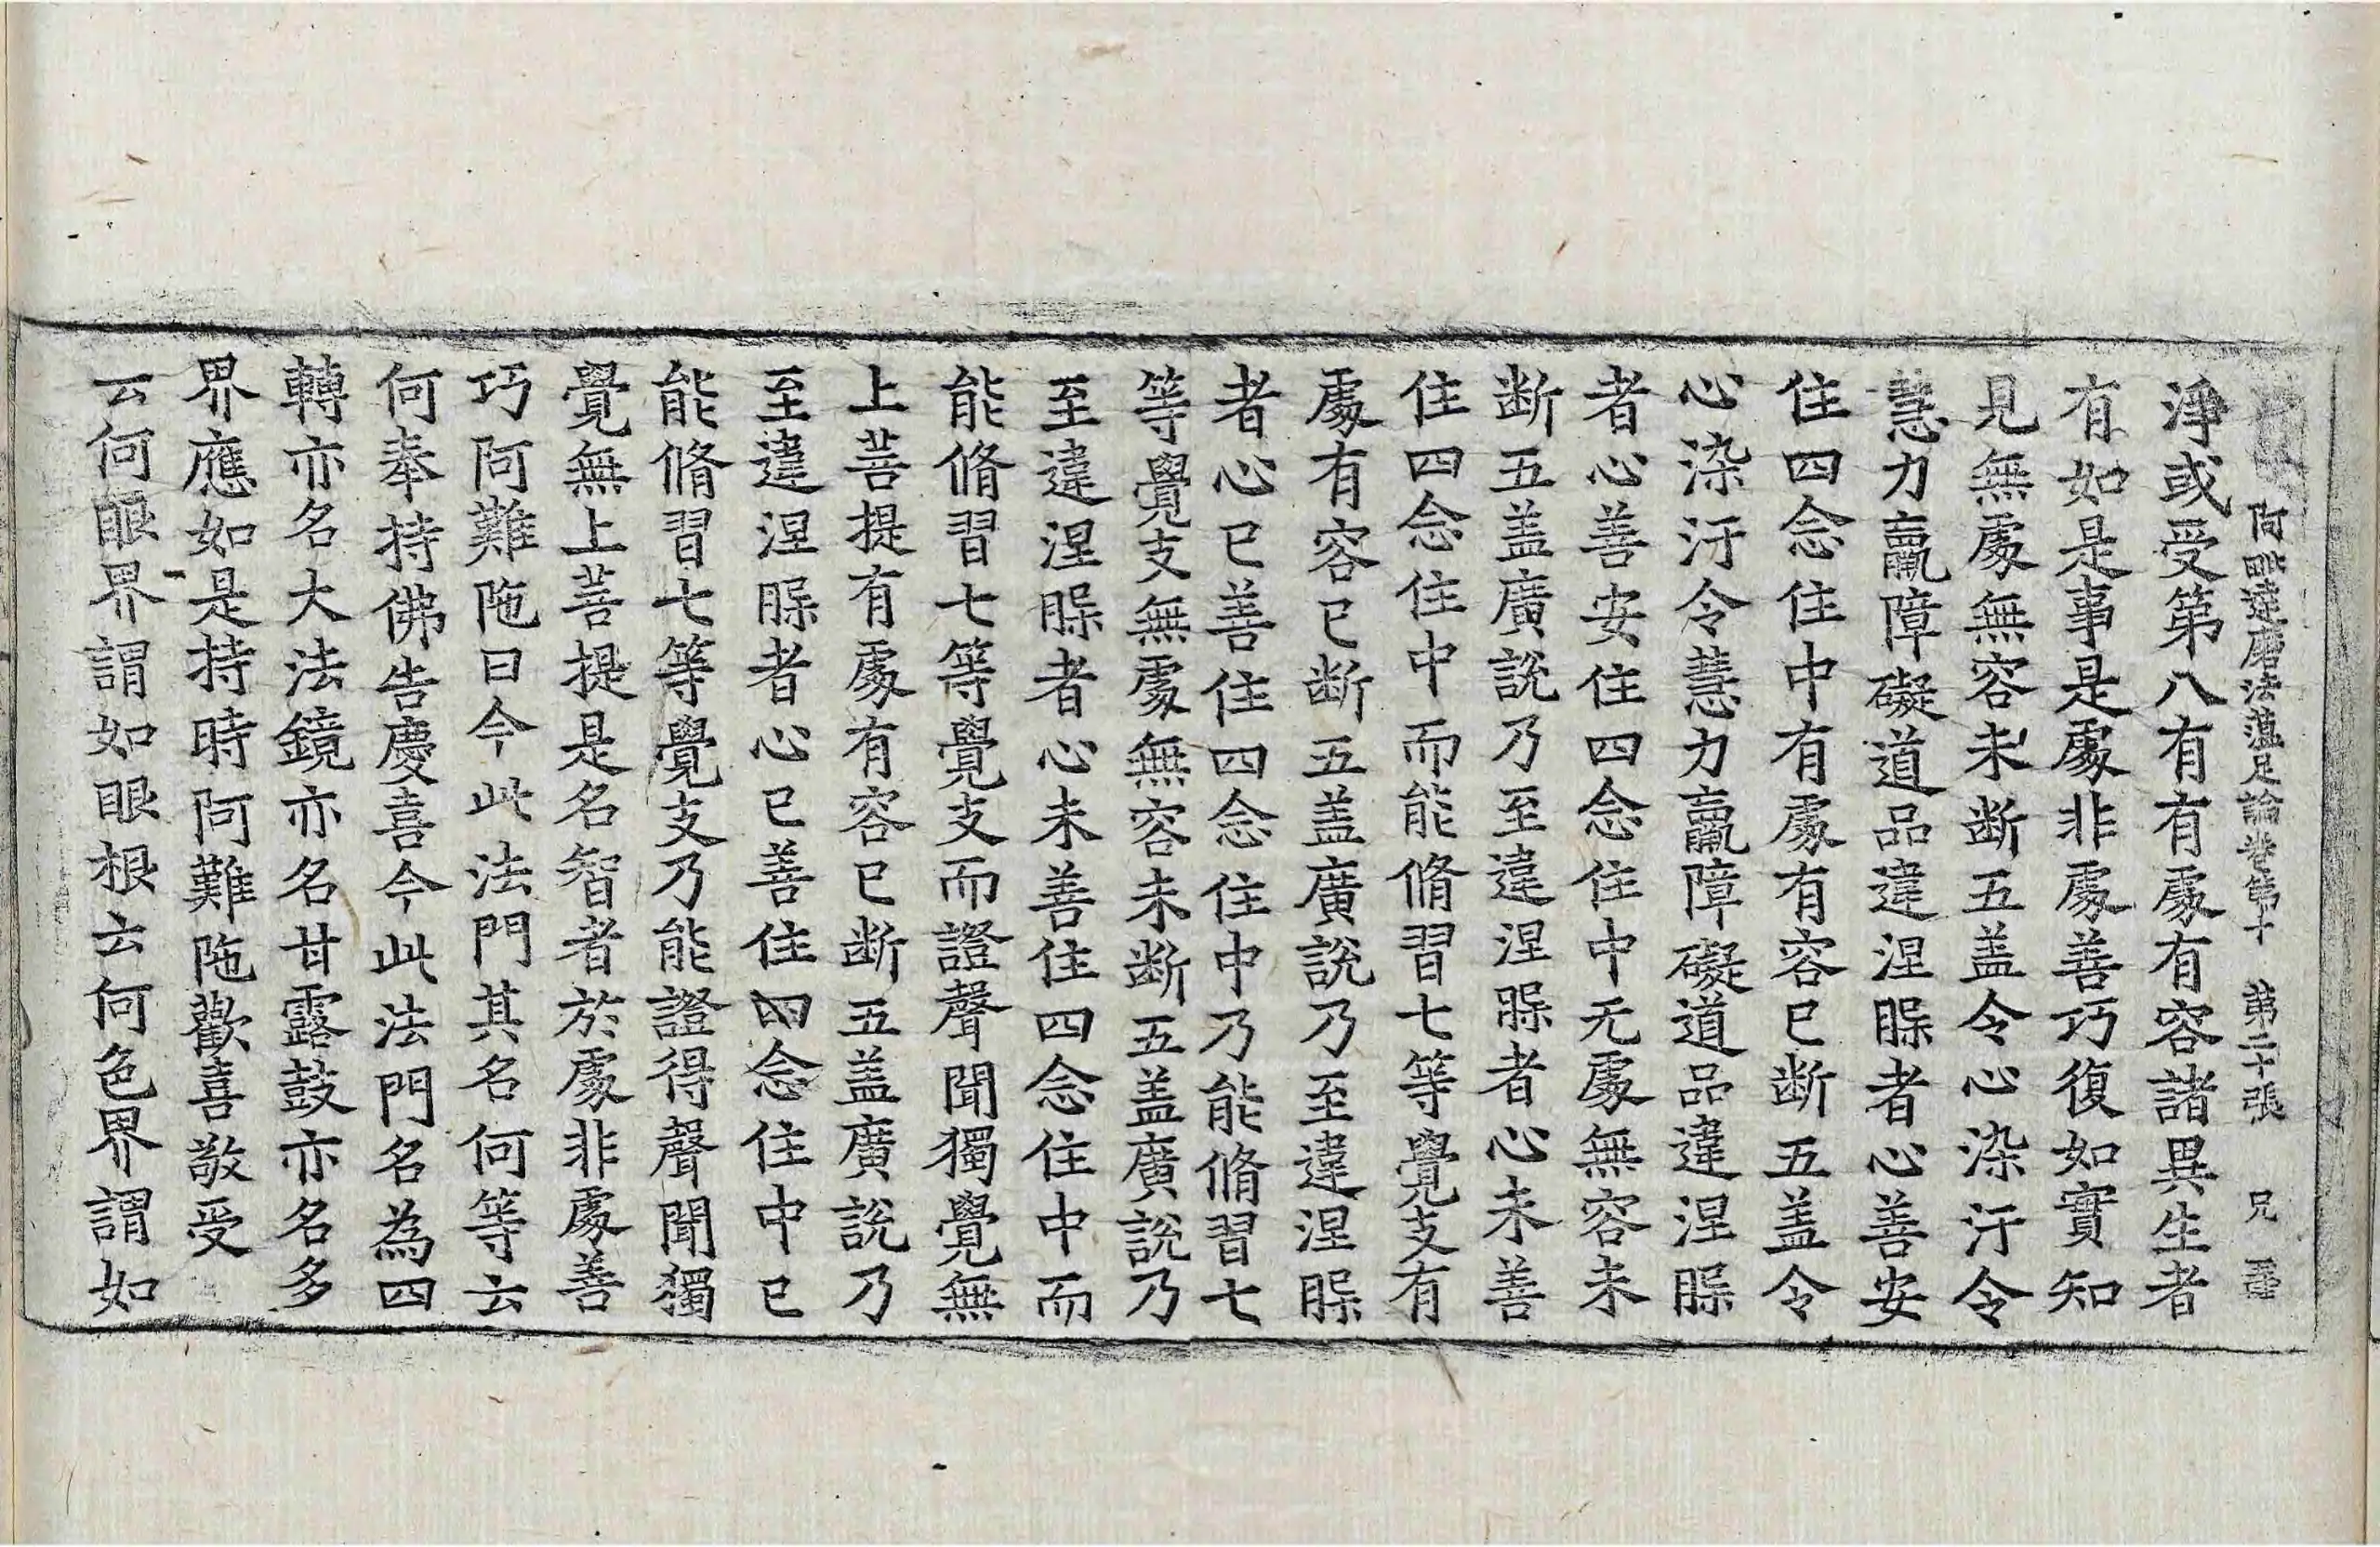 阿毗達磨法蘊足論卷第十 第二十張 兄
淨或受第八有有處有容諸異生者
有如是事是處非處善巧復如實知
見無處無容未斷五盖令心染汙令
慧力羸障礙道品違涅槃者心善安
住四念住中有處有容已斷五盖令
心染汙令慧力羸障礙道品違涅槃
者心善安住四念住中无處無容未
斷五盖廣說乃至違涅槃者心未善
住四念住中而能脩習七等覺支有
處有容已斷五盖廣說乃至違涅槃
者心已善住四念住中乃能脩習七
等覺支無處無容未斷五盖廣說乃
至違涅槃者心未善住四念住中而
能脩習七等覺支而證聲聞獨覺無
上菩提有處有容已斷五盖廣說乃
至違涅槃者心已善住四念住中已
能脩習七等覺支乃能證得聲聞獨
覺無上菩提是名智者於處非處善
巧阿難陁曰今此法門其名何等云
何奉持佛告慶喜今此法門名為四
轉亦名大法鏡亦名甘露鼓亦名多
界應如是持時阿難陁歡喜敬受
云何眼界謂如眼根云何色界謂如